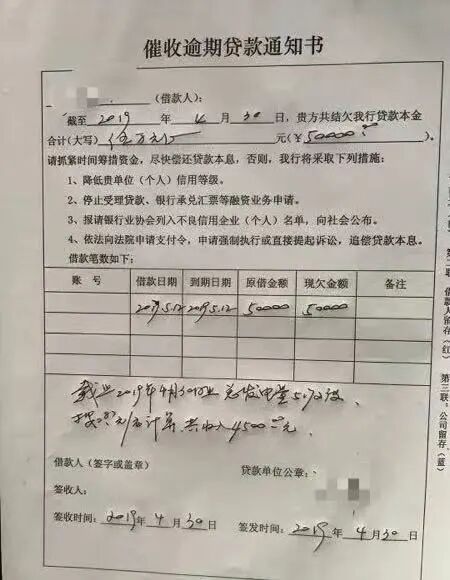 催收逾期贷款通知书
(借款人):
截至 2019 年 4 月 30 日,贵方共结欠我行贷款本金
合计(大写) 伍万元 元(¥50000 )。
请抓紧时间筹措资金,尽快偿还贷款本息,否则,我行将采取下列措施:
1、降低贵单位(个人)信用等级。
2、停止受理贷款、银行承兑汇票等融资业务申请。
3、报请银行业协会列入不良信用企业(个人)名单,向社会公布。
4、依法向法院申请支付令,申请强制执行或直接提起诉讼,追偿贷款本息。
借款笔数如下:
账 号 借款日期 到期日期 原借金额 现欠金额 备注
2019.5.12 50000 50000
2019年4月30日 总发电量
计算 共收入4500 元
借款人(签字或盖章) 贷款单位公章:
签收人:
签收时间:2019年 4 月 30 日 签发时间:2019年 4 月 30 日
借款人留存(红)
第三联:公司留存(蓝)